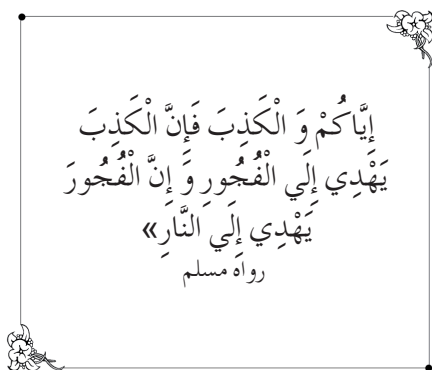 إِيَّاكُمْ وَ الْكَذِبَ فَإِنَّ الْكَذِبَ
يَهْدِي إِلَي الْفُجُورِ وَ إِنَّ الْفُجُورَ
يَهْدِي إِلَي النَّارِ»
رواه مسلم